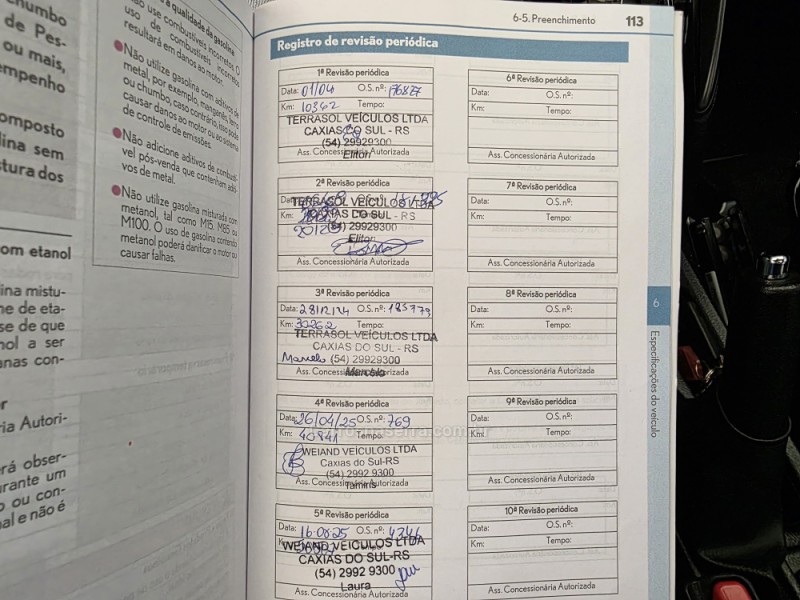 chumbo
de Pes-
ou mais,
empenho
composto
lina sem
stura dos
om etanol
ina mistu-
me de eta-
se de que
nol a ser
anas con-
ria Autori-
erá obser-
urante um
o ou con-
al e não é
qualidade da gasolina
use combustíveis incorretos. O
uso de combustíveis incorretos
resultará em danos ao motor.
Não utilize gasolina com aditivos de
metal, por exemplo, manganês, ferro
ou chumbo, caso contrário, isso pode
causar danos ao motor ou ao sistema
de controle de emissões.
Não adicione aditivos de combustí-
vel pós-venda que contenham aditi-
vos de metal.
Não utilize gasolina misturada com
metanol, tal como M15, M85 ou
M100. O uso de gasolina contendo
metanol poderá danificar o motor ou
causar falhas.
6-5. Preenchimento 113
Registro de revisão periódica
1ª Revisão periódica
Data: 01/04 O.S. nº: 176827
Km: 10362 Tempo:
TERRASOL VEÍCULOS LTDA
CAXIAS DO SUL - RS
(54) 29929300
Ass. Concessionária Autorizada
Eliton
2ª Revisão periódica
TERRASOL VEÍCULOS LTDA
CAXIAS DO SUL - RS
(54) 29929300
Eliton
Ass. Concessionária Autorizada
3ª Revisão periódica
Data: 28/12/24 O.S. nº: 185779
Km: 30262 Tempo:
TERRASOL VEÍCULOS LTDA
CAXIAS DO SUL - RS
Marcelo (54) 29929300
Ass. Concessionária Autorizada
Marcelo
4ª Revisão periódica
Data: 26/04/25 O.S. nº: 769
Km: 40841 Tempo:
WEIAND VEÍCULOS LTDA
Caxias do Sul-RS
(54) 2992 9300
Ass. Concessionária Autorizada
Tamiris
5ª Revisão periódica
Data: 16.08.25 O.S. nº: 4346
WEIAND VEÍCULOS LTDA
CAXIAS DO SUL-RS
(54) 2992 9300
Laura
Ass. Concessionária Autorizada
6ª Revisão periódica
Data: O.S. nº:
Km: Tempo:
Ass. Concessionária Autorizada
7ª Revisão periódica
Data: O.S. nº:
Km: Tempo:
Ass. Concessionária Autorizada
8ª Revisão periódica
Data: O.S. nº:
Km: Tempo:
Ass. Concessionária Autorizada
9ª Revisão periódica
Data: O.S. nº:
Km: Tempo:
Ass. Concessionária Autorizada
10ª Revisão periódica
Data: O.S. nº:
Km: Tempo:
Ass. Concessionária Autorizada
6
Especificações do veículo